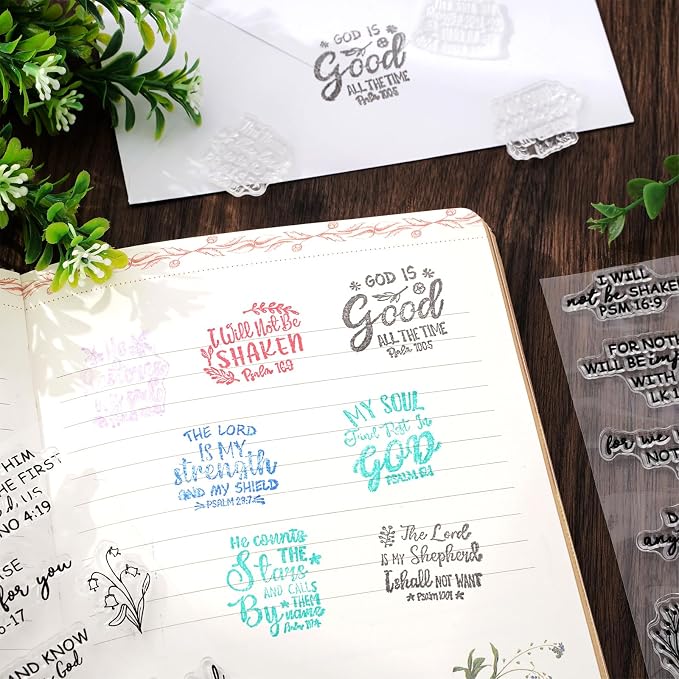 GOD IS
Good
ALL THE TIME
Psalm 100:5
I Will Not Be
SHAKEN
Psalm 16:9
GOD IS
Good
ALL THE TIME
Psalm 100:5
THE LORD
IS MY
strength
AND MY SHIELD
PSALM 28:7
MY SOUL
Find Rest In
GOD
PSALM 62:1
He counts
THE
Stars
AND CALLS
THEM
By name
The Lord
IS MY Shepherd
I shall NOT WANT
I WILL
not be SHAKEN
PSM 16:9
FOR NOTH
WILL BE imp
WITH
LK 1
for we
NOT
D
any
HIM
HE FIRST
d, US
NO 4:19
SE
for you
5-17
AND KNOW
God